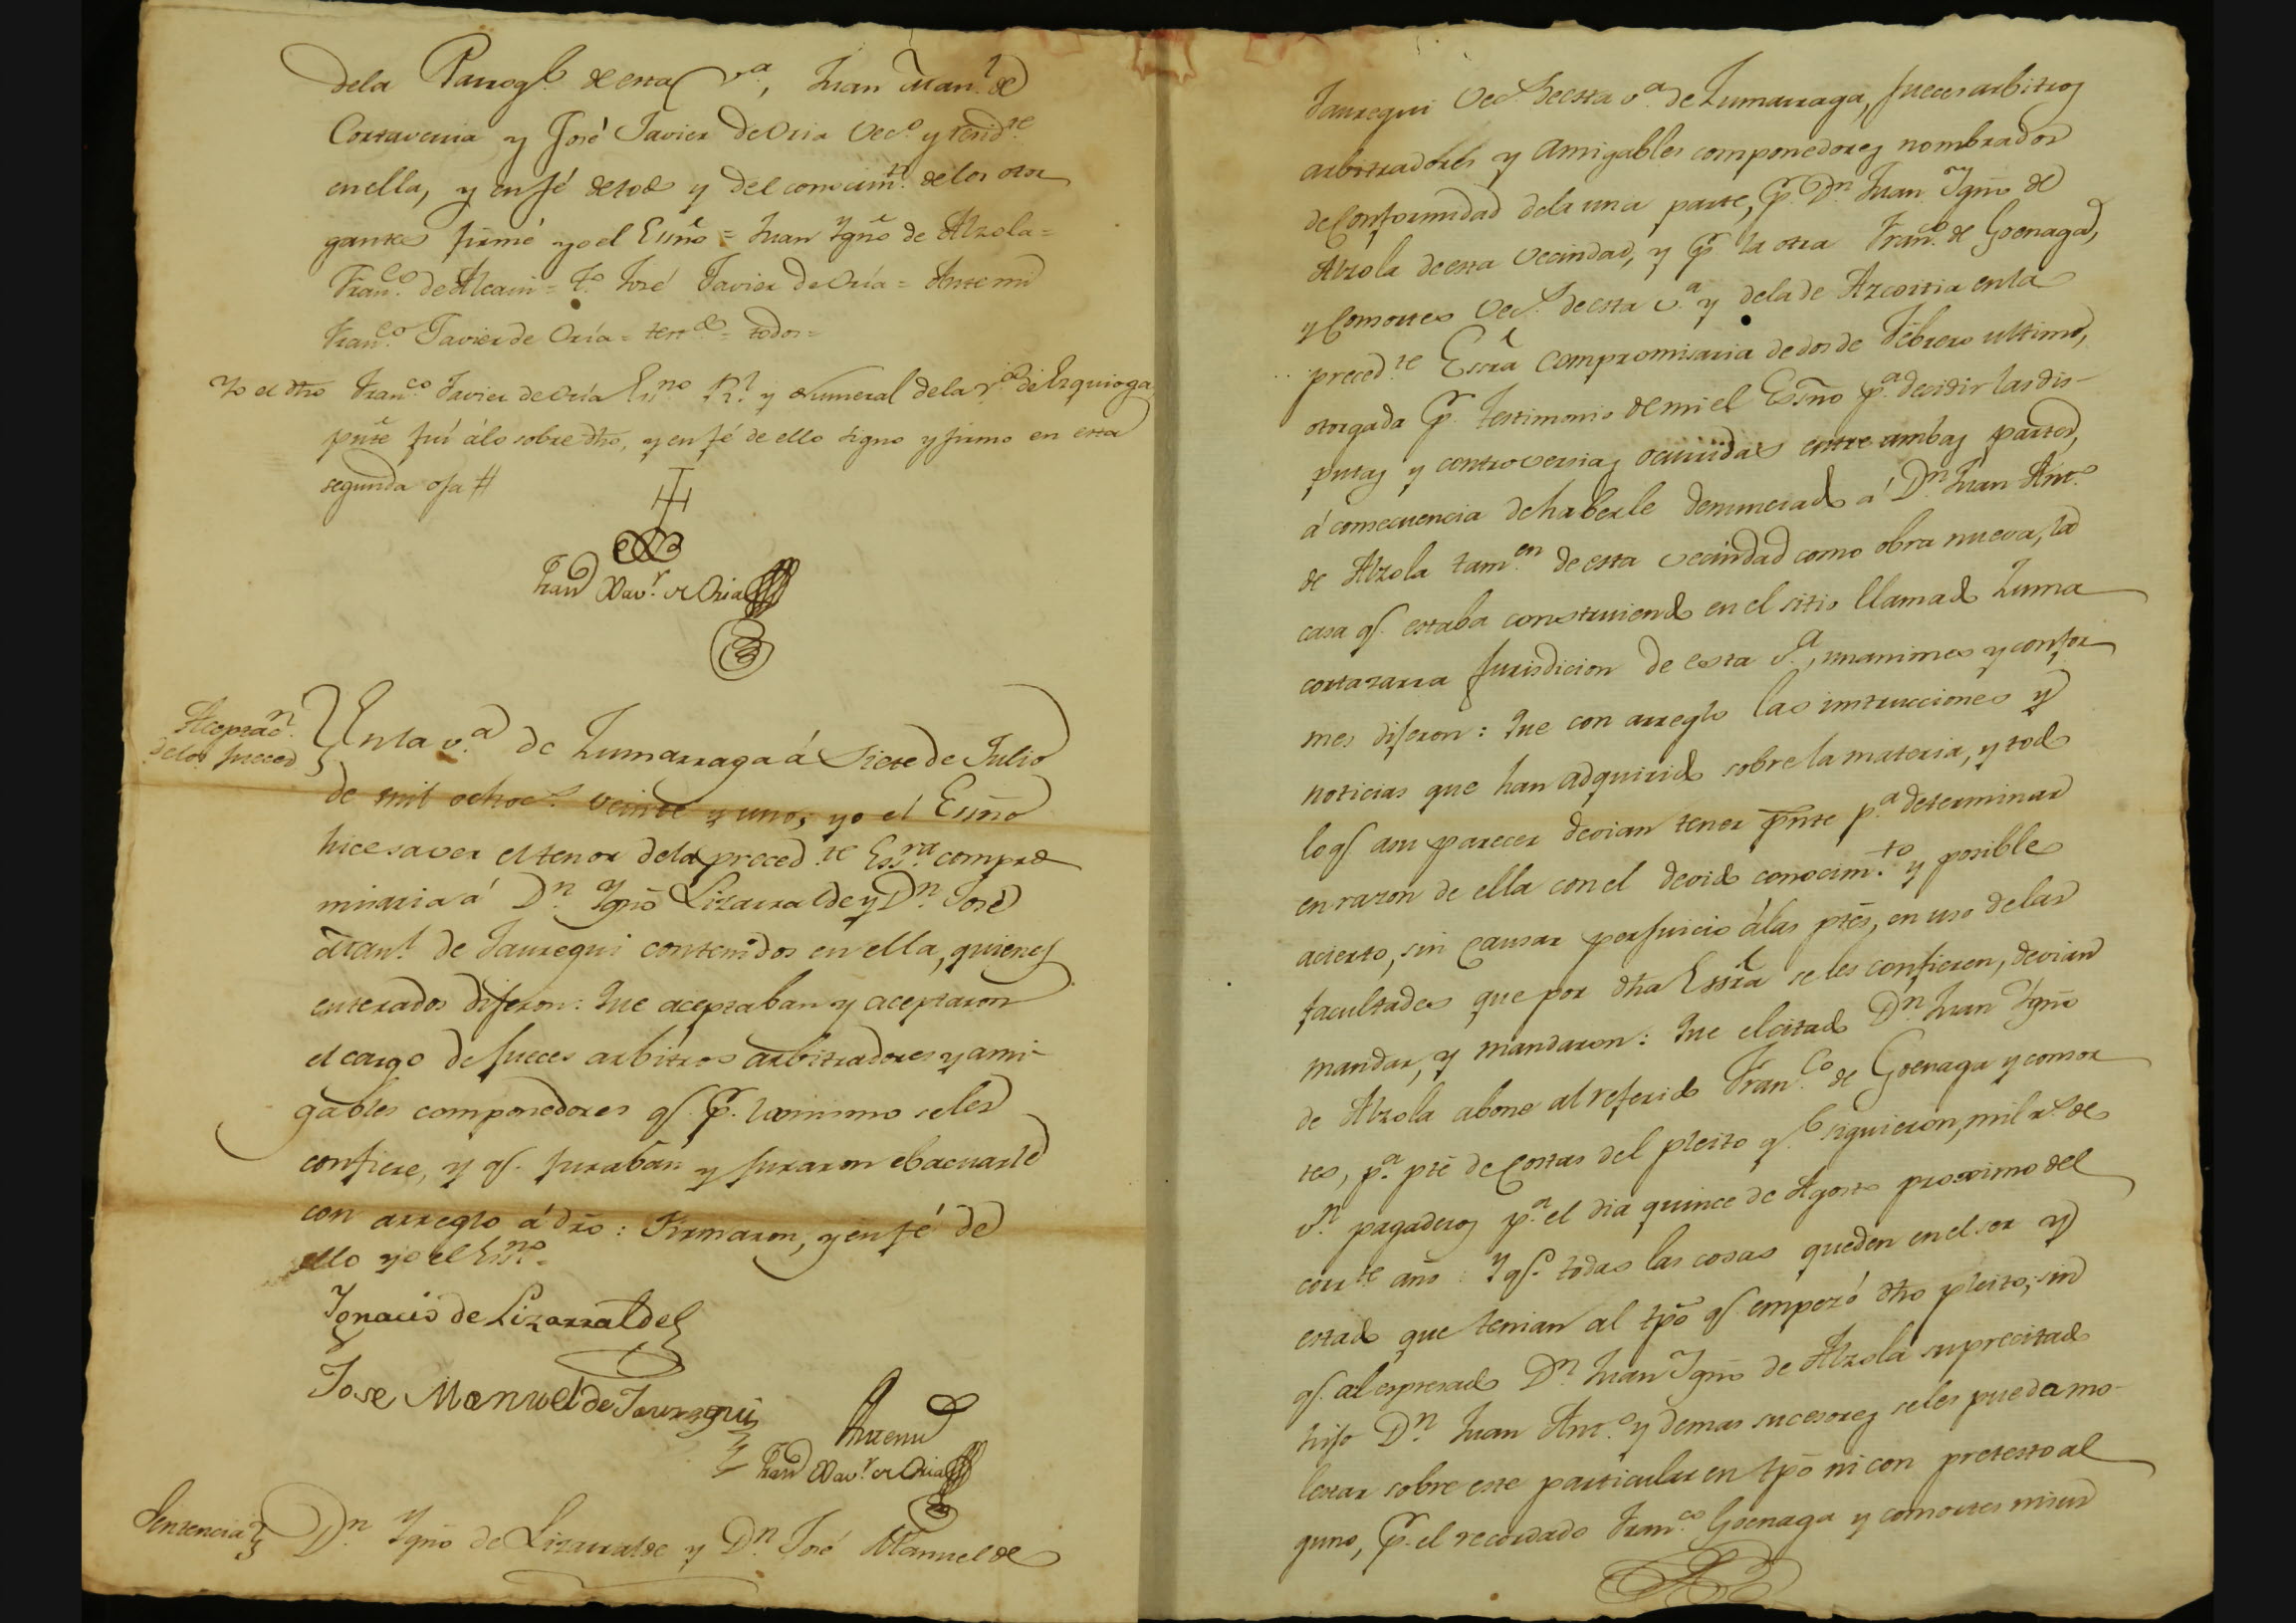 dela Parroql. de esta v.a, Juan Man.l de
Cortaverria y José Javier de Oria Vec.s y resid.te
en ella, y en fé de todo y del conocim.to de los otor
gantes firmé yo el Essño = Juan Ygño de Alzola =
Fran.co de Alcain = T.o José Javier de Oría = Ante mi
Fran.co Javier de Oría = test.do = todos =
Yo el dho Fran.co Javier de Oría Es.no R.l y Numeral de la v.a de Ezquioga
pnte fuí á lo sobre dho, y en fé de ello signo y firmo en esta
segunda oja #
Fran.co Xav.r de Oria
Aceptac.n
de los Jueces
En la v.a de Zumarraga á Siete de Julio
de mil ochoc.s veinte y uno, yo el Essño
hice saver el tenor de la preced.te Ess.ra compro
misaria á D.n Ygño Lizarralde y D.n José
Man.l de Jauregui contenidos en ella, quienes
enterados dijeron: Que aceptaban y aceptaron
el cargo de Jueces arbitros arbitradores y ami-
gables componedores q.e p.r la misma se les
confiere, y q.e juraban y juraron evacuarle
con arreglo á dro: Firmaron, y en fé de
ello yo el Es.no =
Ignacio de Lizarralde
Jose Manuel de Jauregui
Ante mi
Fran.co Xav.r de Oria
Sentencia
D.n Ygño de Lizarralde y D.n José Manuel de
Jauregui Vec.s de esta v.a de Zumarraga, Jueces arbitros
arbitradores y amigables componedores nombrados
de conformidad de la una parte, p.r D.n Juan Ygño de
Alzola de esta vecindad, y p.r la otra Fran.co de Goenaga,
y Consortes Vec.s de esta v.a y de la de Azcoitia en la
preced.te Essra compromisaria de dos de Febrero ultimo,
otorgada p.r testimonio de mi el Essño p.a decidir las dis-
putas y controversias ocurridas entre ambas partes,
á consecuencia de haberle denunciado á D.n Juan Ant.o
de Alzola tam.en de esta vecindad como obra nueva, la
casa q.e estaba construiendo en el sitio llamado Zuma
cortazarra Jurisdicion de esta v.a, unanimes y confor
mes dijeron: Que con arreglo las instrucciones y
noticias que han adquirido sobre la materia, y todo
lo q.e a su parecer devian tener pnte p.a determinar
en razon de ella con el devido conocim.to y posible
acierto, sin causar perjuicio á las ptes, en uso de las
facultades que por dha Essra se les confieren, devian
mandar, y mandaron: Que el citado D.n Juan Ygño
de Alzola abone al referido Fran.co de Goenaga y consor
tes, p.a pte de Costas del pleito q.e siguieron, mil r.s de
v.n pagaderos p.a el dia quince de Agosto proximo del
corr.te año: Y q.e todas las cosas queden en el ser y
estado que tenian al tpo q.e empezó dho pleito, sin
q.e al espresado D.n Juan Ygño de Alzola su precitado
hijo D.n Juan Ant.o y demas sucesores se les pueda mo-
lestar sobre este particular en tpo ni con pretesto al
guno, p.r el recordado Fran.co Goenaga y consortes ni sus